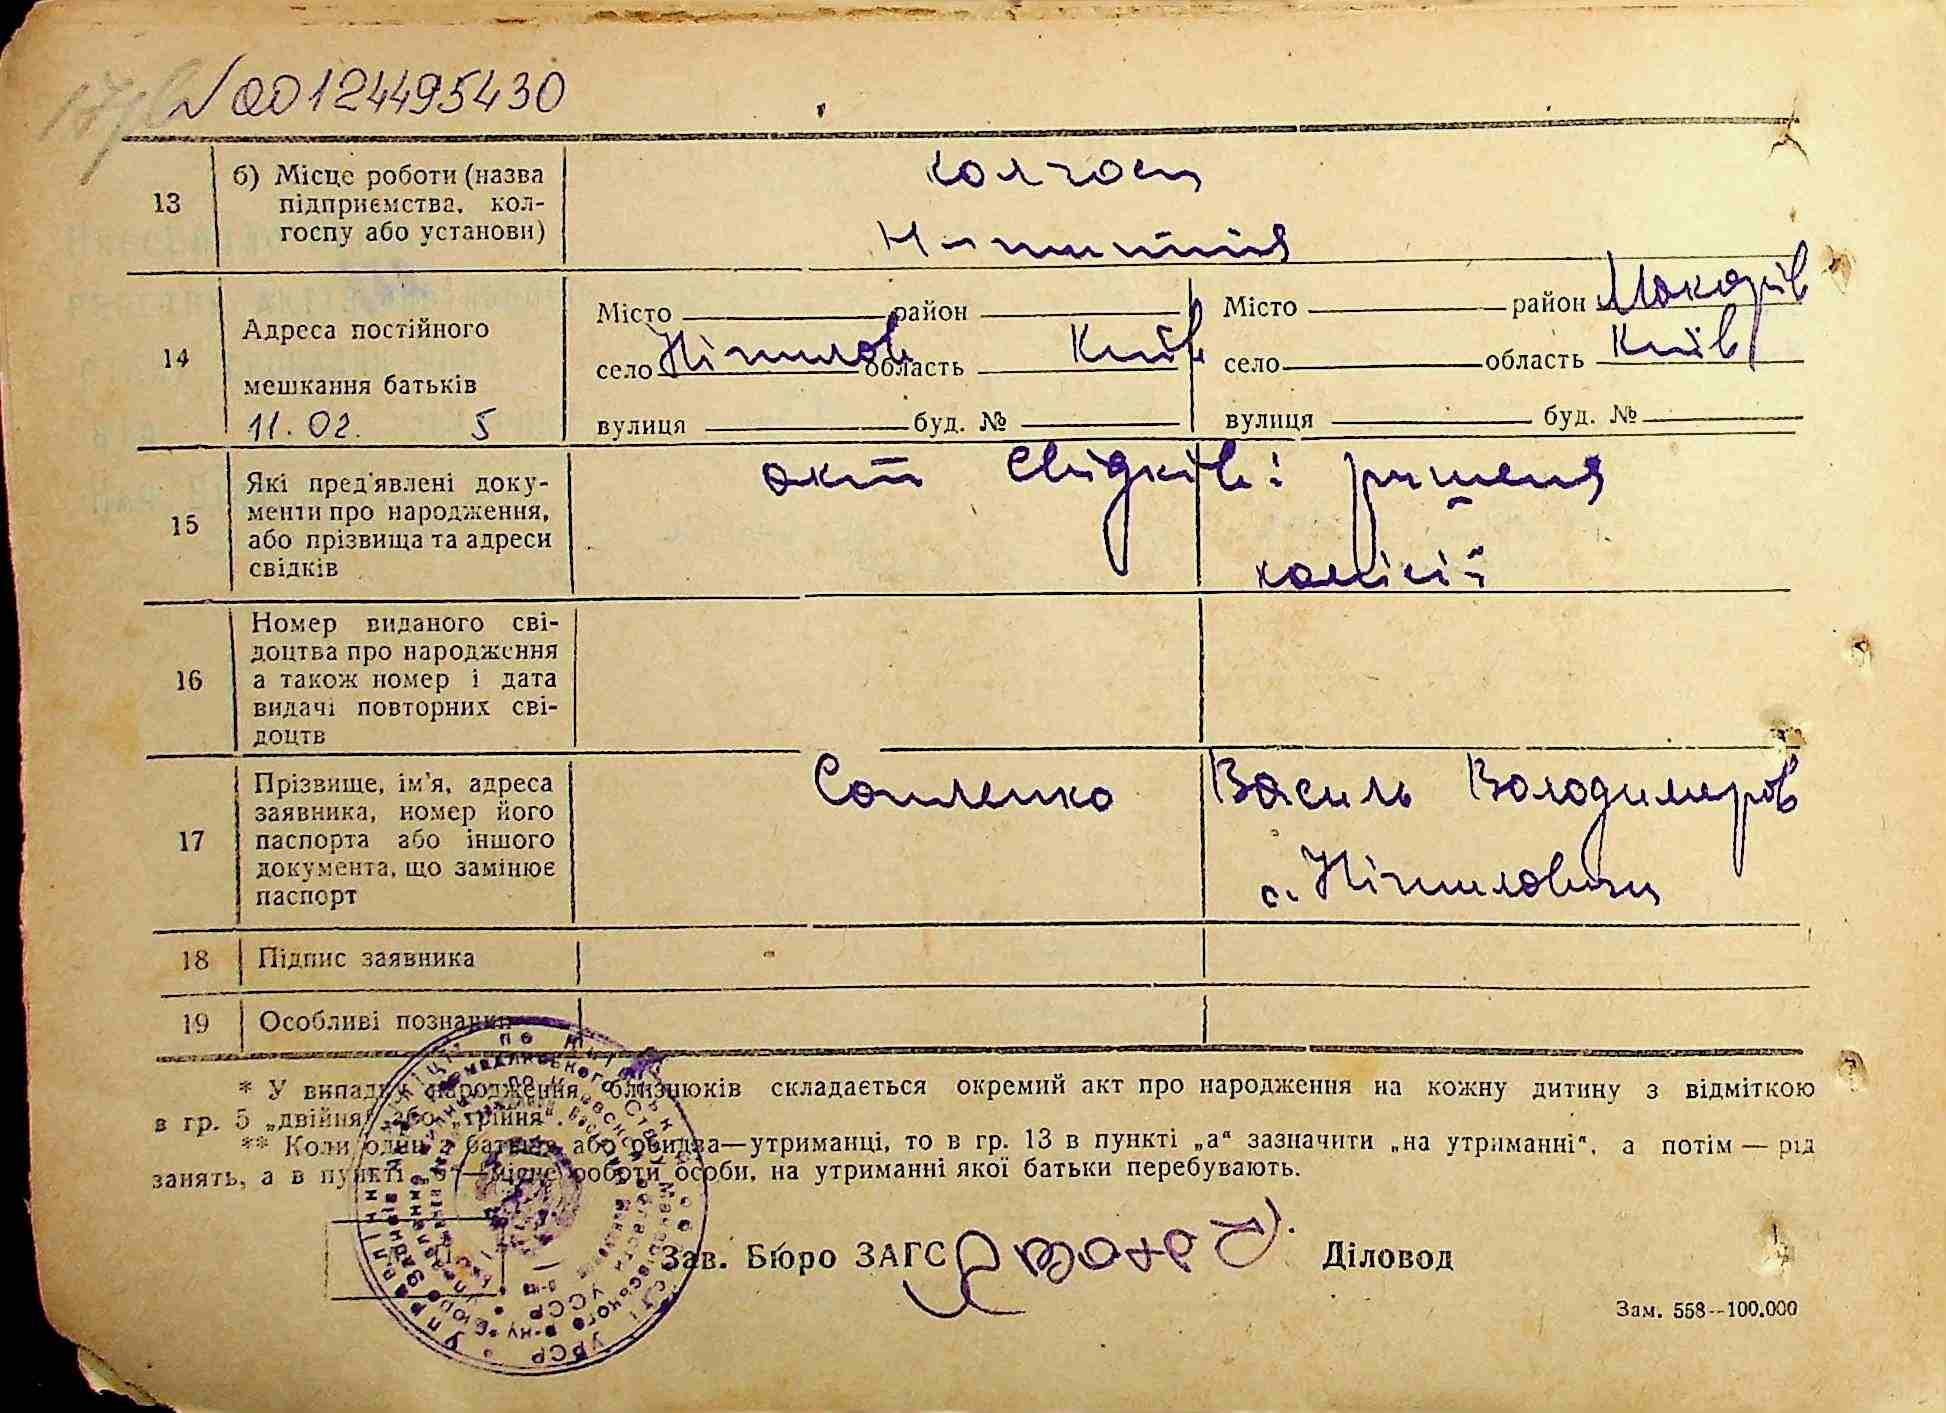 00124495430
13
б) Місце роботи (назва
підприємства, кол-
госпу або установи)
колгосп
14
Адреса постійного
мешкання батьків
11.02. 5
Місто район
село Ніжилов область Київ
вулиця буд. №
Місто район Макарів
село область Київ
вулиця буд. №
15
Які пред'явлені доку-
менти про народження,
або прізвища та адреси
свідків
акт свідків і рішення
комісії
16
Номер виданого сві-
доцтва про народження
а також номер і дата
видачі повторних сві-
доцтв
17
Прізвище, ім'я, адреса
заявника, номер його
паспорта або іншого
документа, що замінює
паспорт
Василь Володимиров
с. Ніжиловичи
18
Підпис заявника
19
Особливі познаки
* У випадку народження близнюків складається окремий акт про народження на кожну дитину з відміткою
в гр. 5 „двійня“ або „трійня“.
** Коли один з батьків або обидва—утриманці, то в гр. 13 в пункті „а“ зазначити „на утриманні“, а потім — рід
занять, а в пункті „б“—місце роботи особи, на утриманні якої батьки перебувають.
Зав. Бюро ЗАГС Діловод
Зам. 558--100.000